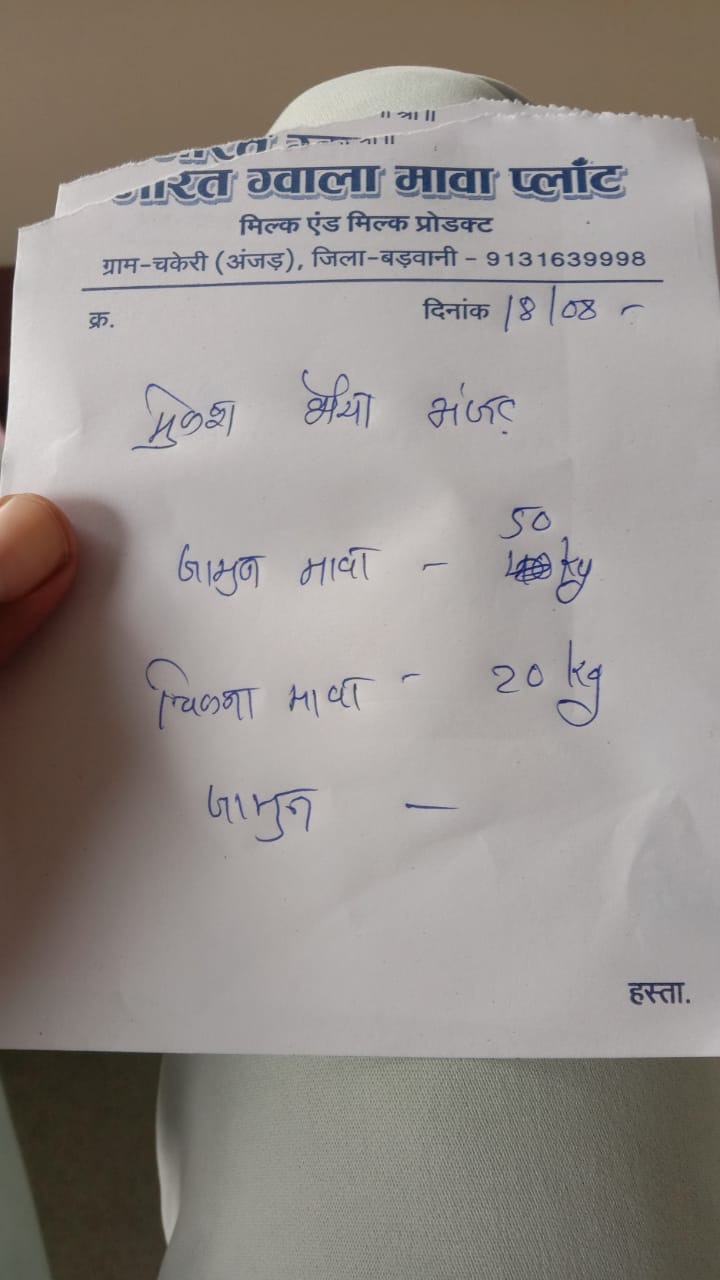 ॥ श्री ॥
भारत ग्वाला मावा प्लाँट
मिल्क एंड मिल्क प्रोडक्ट
ग्राम-चकेरी (अंजड़), जिला-बड़वानी - 9131639998
क्र. दिनांक 18/08 -
मुकेश भैया अंजड़
50
जामुन मावा - kg
चिकना मावा - 20 kg
जामुन -
हस्ता.